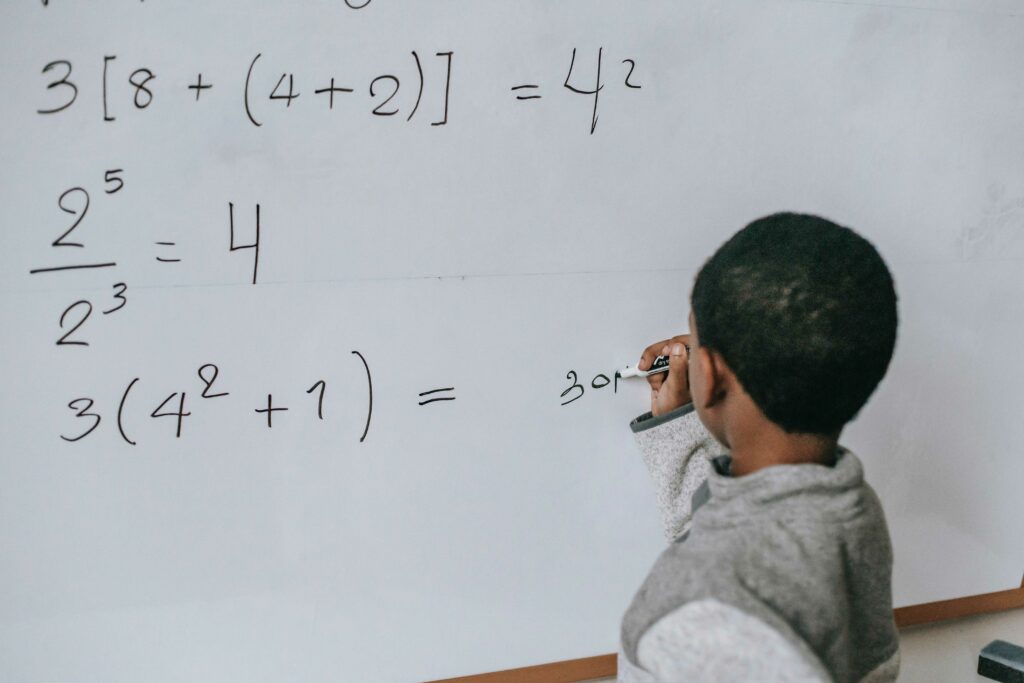 3 [8 + (4 + 2)] = 4²
2⁵
— = 4
2³
3 (4² + 1) = 30